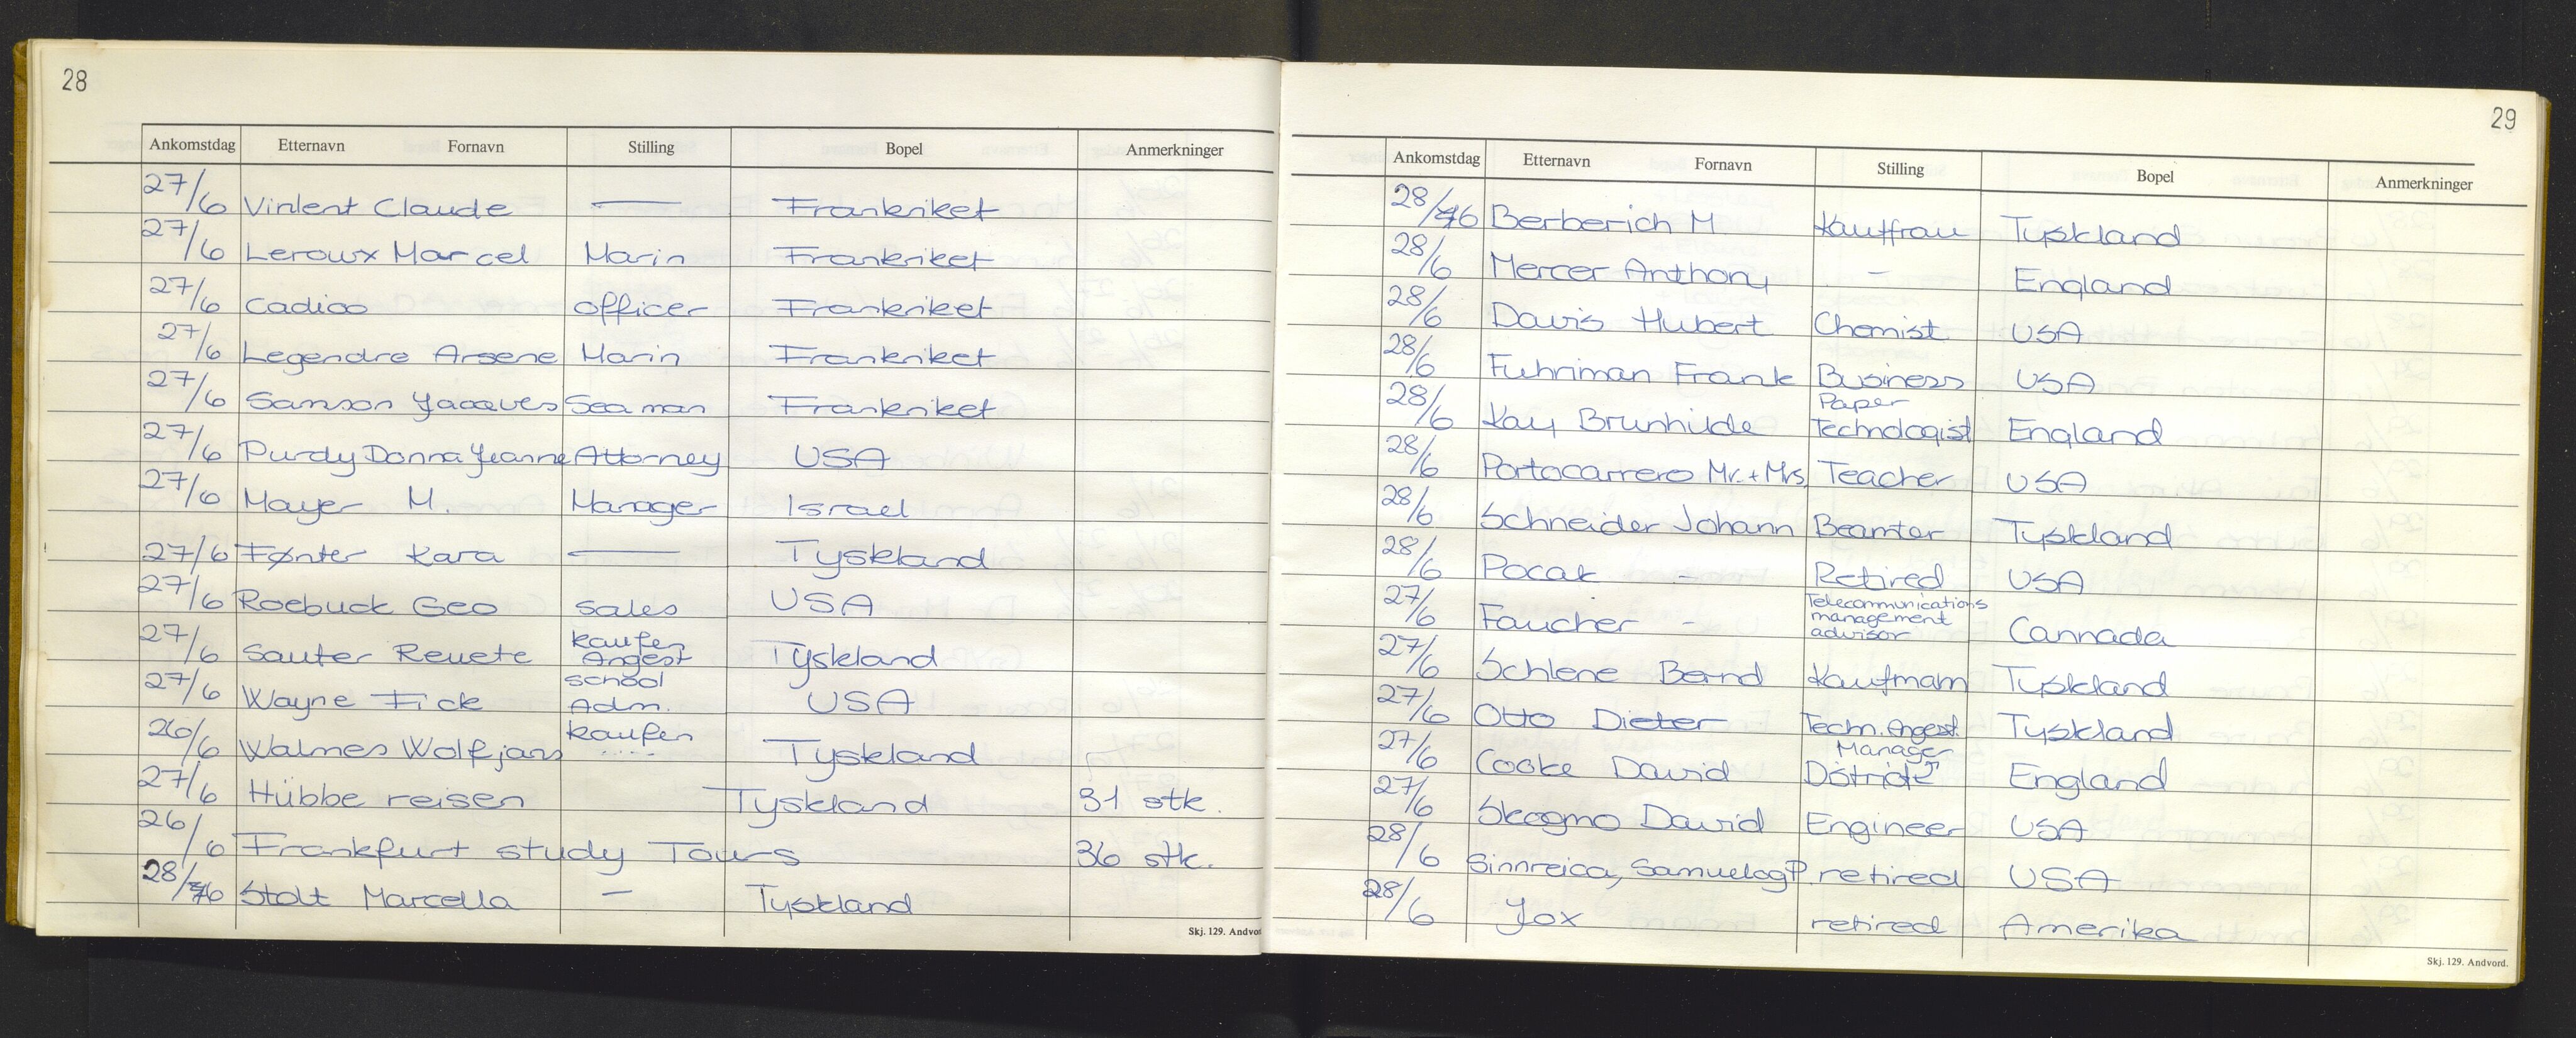 28
Ankomstdag Etternavn Fornavn Stilling Bopel Anmerkninger
27/6 Vinlent Claude — Frankriket
27/6 Leroux Marcel Marin Frankriket
27/6 Cadioo officer Frankriket
27/6 Legendre Arsene Marin Frankriket
27/6 Samson Jacques Seaman Frankriket
27/6 Purdy Donna Jeanne Attorney USA
27/6 Mayer M. Manager Israel
27/6 Fønter Kara — Tyskland
27/6 Roebuck Geo sales USA
27/6 Sauter Reuete kaufen Angest Tyskland
27/6 Wayne Fick school Adm. USA
26/6 Walmes Wolfjans kaufen .... Tyskland
27/6 Hübbe reisen Tyskland 31 stk.
26/6 Frankfurt study Tours 36 stk.
28/6 Stolt Marcella — Tyskland
Skj. 129. Andvor
29
Ankomstdag Etternavn Fornavn Stilling Bopel Anmerkninger
28/6 Berberich M. Kauffrau Tyskland
28/6 Mercer Anthony - England
28/6 Davis Hubert Chemist USA
28/6 Fuhriman Frank Business USA
28/6 Kay Brunhilde Paper Technologist England
28/6 Portocarrero Mr. + Mrs. Teacher USA
28/6 Schneider Johann Beamter Tyskland
28/6 Pocak - Retired USA
27/6 Faucher - Telecommunications management advisor Cannada
27/6 Schlene Bernd Kaufmam Tyskland
27/6 Otto Dieter Techn. Angest. Tyskland
27/6 Cooke David Manager District England
27/6 Skogmo David Engineer USA
28/6 Sinnreica, Samuel og P. retired USA
28/6 Jox retired Amerika
Skj. 129. Andvord.